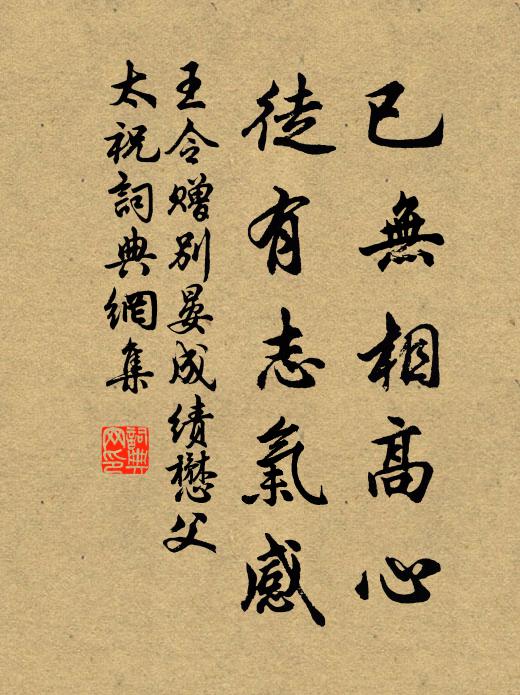 已無相高心
徒有志氣感
王令贈別晏成績懋父
太祝詞典網集
詞典
網印